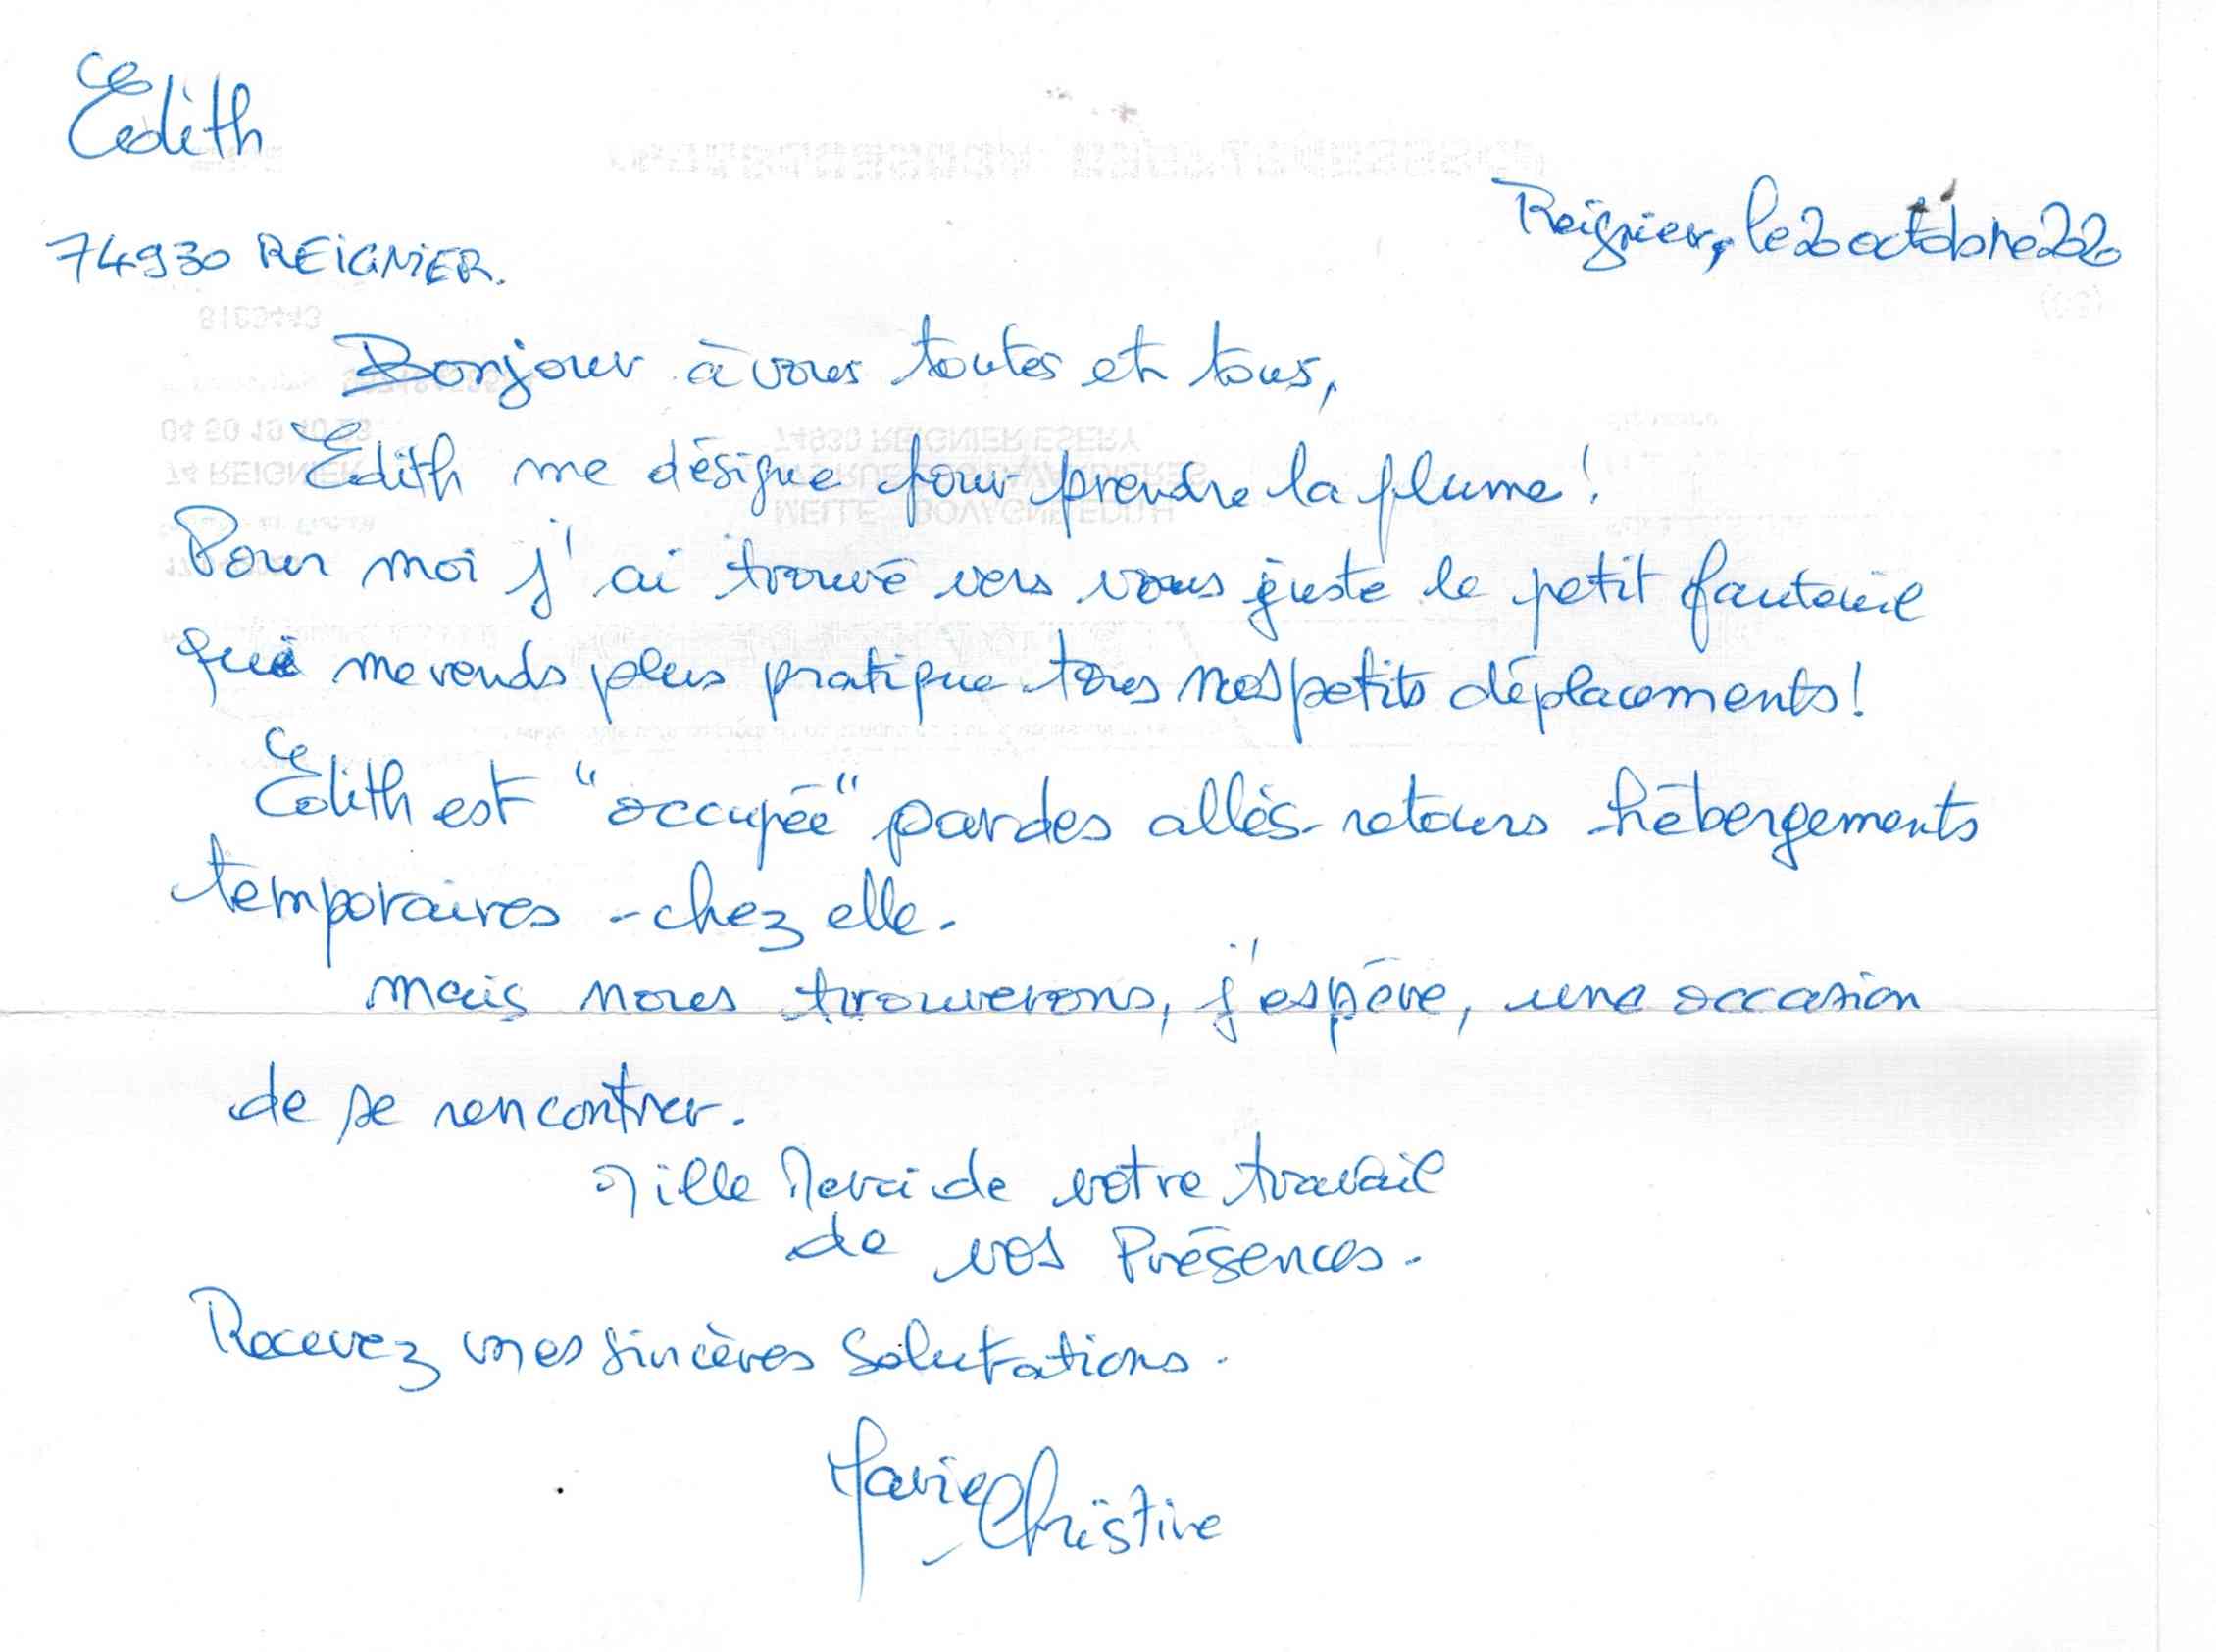 Edith
74930 REIGNIER.
Reignier, le 2 octobre 2020
Bonjour à vous toutes et tous,
Edith me désigne pour prendre la plume !
Pour moi j'ai trouvé vers vous juste le petit fauteuil
qui me rends plus pratique tous nos petits déplacements !
Edith est "occupée" par des allés-retours hébergements
temporaires - chez elle.
mais nous trouverons, j'espère, une occasion
de se rencontrer.
Mille Merci de votre travail
de vos Présences.
Recevez mes sincères Salutations.
Marie Christine
8163443
04 50 19 40
74 REIGNIER
74930 REIGNIER ESERY